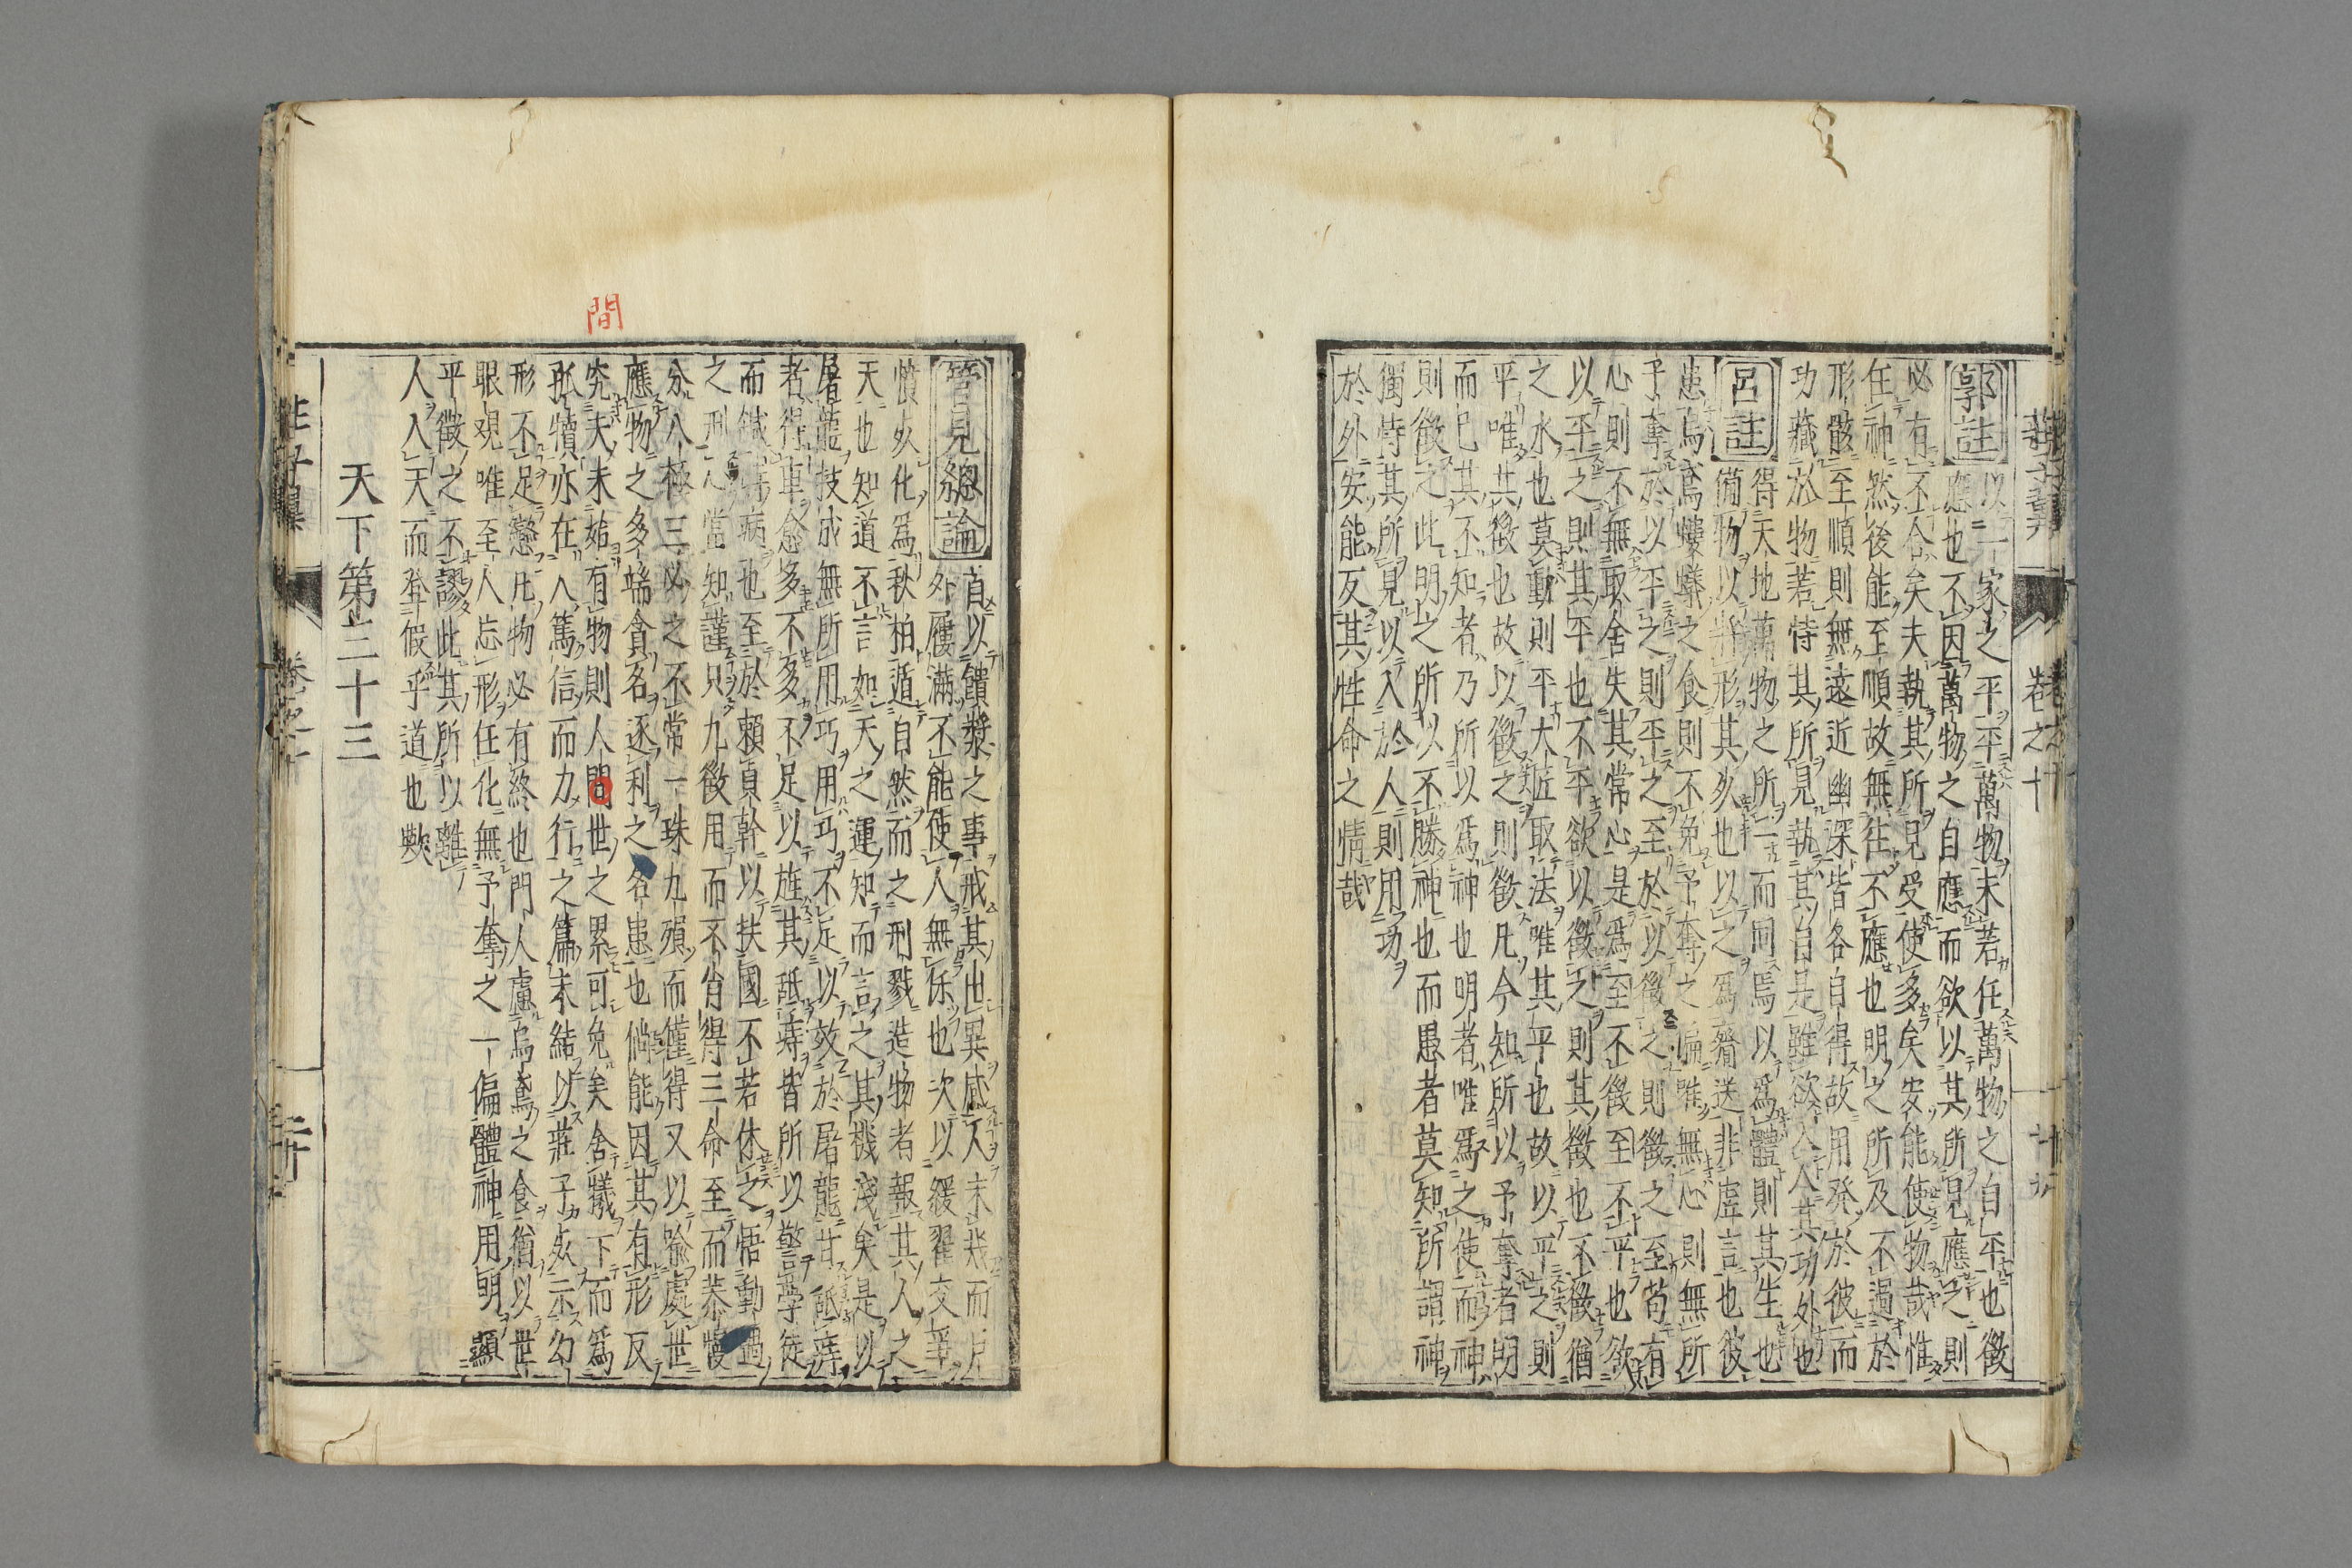 郭註 以一家之平平萬物未若任萬物之自平也徵
應也不因萬物之自應而欲以其所見應之則
必有不合矣夫執其所見受使多矣安能使物哉惟
任神然後能至順故無往不應也明之所及不過於
形骸至順則無遠近幽深皆各自得故用發於彼而
功藏於物若恃其所見執其自是雖欲入人其功外也
呂註 得天地萬物之所一而同焉以爲體則其生也
備物以將形其死也以之爲齎送非虛言也彼
患烏鳶螻蟻之食則不免予奪之偏唯無心則無所
予奪於以平之則平之至於以徵之則徵之至苟有
心則不無取舍失其常心是爲至不徵至不平也欲
以平之則其平也不平欲以徵之則其徵也不徵猶
之水也莫動則平大匠取法唯其平也故以平之則
平唯其徵也故以徵之則徵凡今知所以予奪者明
而已其不知者乃所以爲神也明者唯爲之使而神
則徵之此明之所以不勝神也而愚者莫知所謂神
獨恃其所見以入於人則用功
於外安能反其性命之情哉
管見總論 首以饋漿之事戒其出異感人未幾而戶
外屨滿不能使人無保也次以緩翟交爭
憤死化爲秋柏遁自然而之刑戮造物者報其人之
天也知道不言如天之運知而言之其機淺矣是以
屠龍技成無所用巧用巧不足以效於屠龍甘舐痔
者得車愈多不多不足以旌其舐痔皆所以警學徒
而鍼 病也至於賴貞幹以扶國不若休之悟動過
之刑人當知謹只九徵用而不肖得三命至而恭慢
分八極三必之不常一珠九 而僅得又以喻處世
應物之多端貪名逐利之名患也倘能因其有形反
究夫未始有物則人間世之累可免矣舍犧下而爲
孤犢亦在人篤信而力行之篇末結以莊子 示幻
形不足戀凡物必有終也門人慮烏鳶之食猶以世
眼觀唯至人忘形任化無予奪之一偏體神用明顯
平徵之不謬此其所以離
人入天而登假乎道也歟
天下第三十三
間